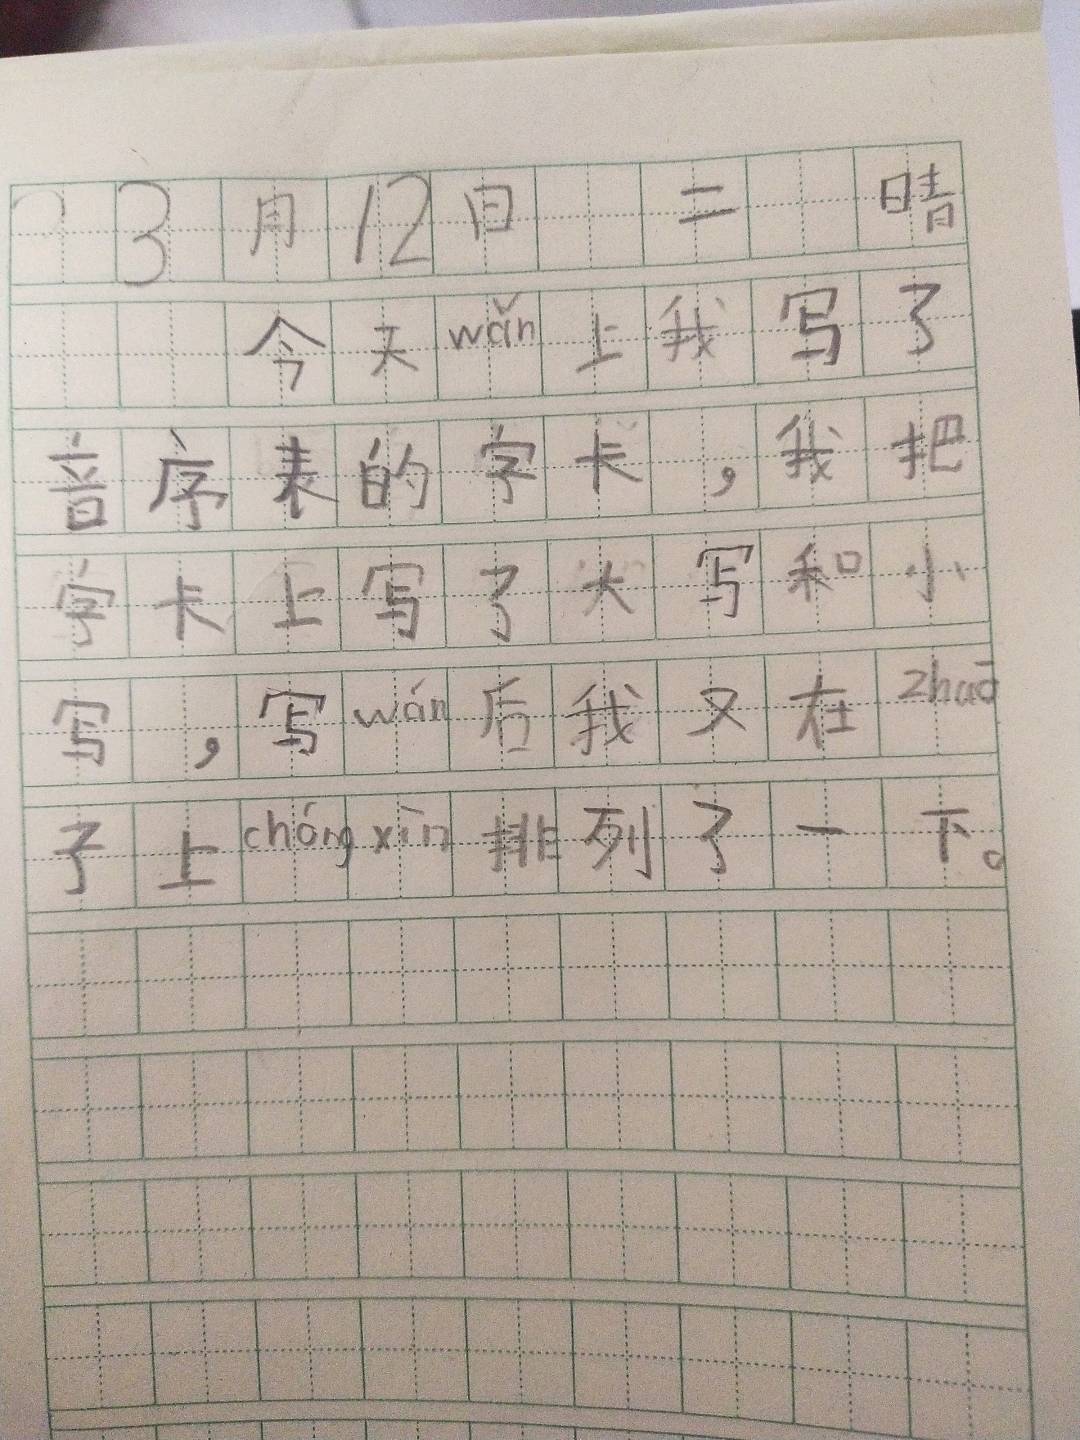 3月12日 二 晴
今天wǎn上我写了
音序表的字卡，我把
字卡上写了大写和小
写，写wán后我又在zhuō
子上chóngxīn排列了一下。